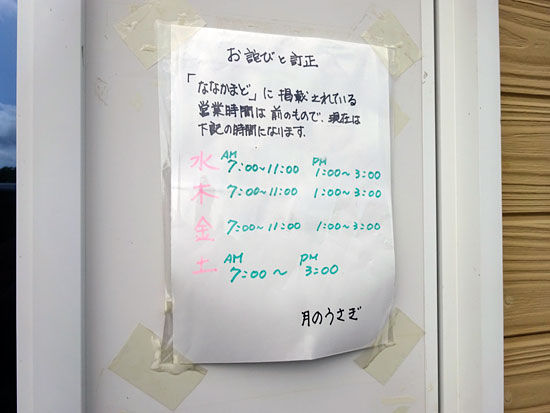 お詫びと訂正
「ななかまど」に掲載されている
営業時間は前のもので、現在は
下記の時間になります。
水 AM 7:00~11:00 PM 1:00~3:00
木 7:00~11:00 1:00~3:00
金 7:00~11:00 1:00~3:00
土 AM 7:00~ PM 3:00
月のうさぎ